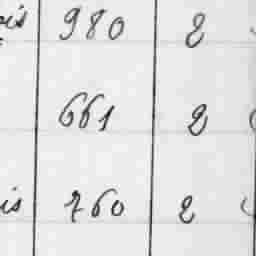 ois 980 2
661 2
is 760 2